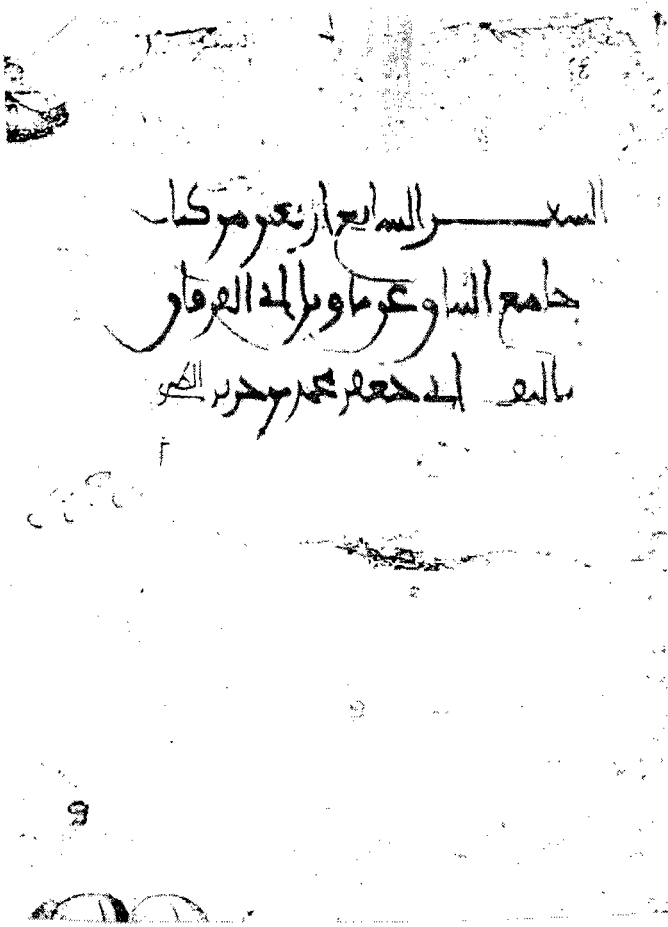 السفر السابع اربعين من كتاب
جامع البيان عن تاويل اي القرقان
تاليف ابي جعفر محمد بن جرير الطبري